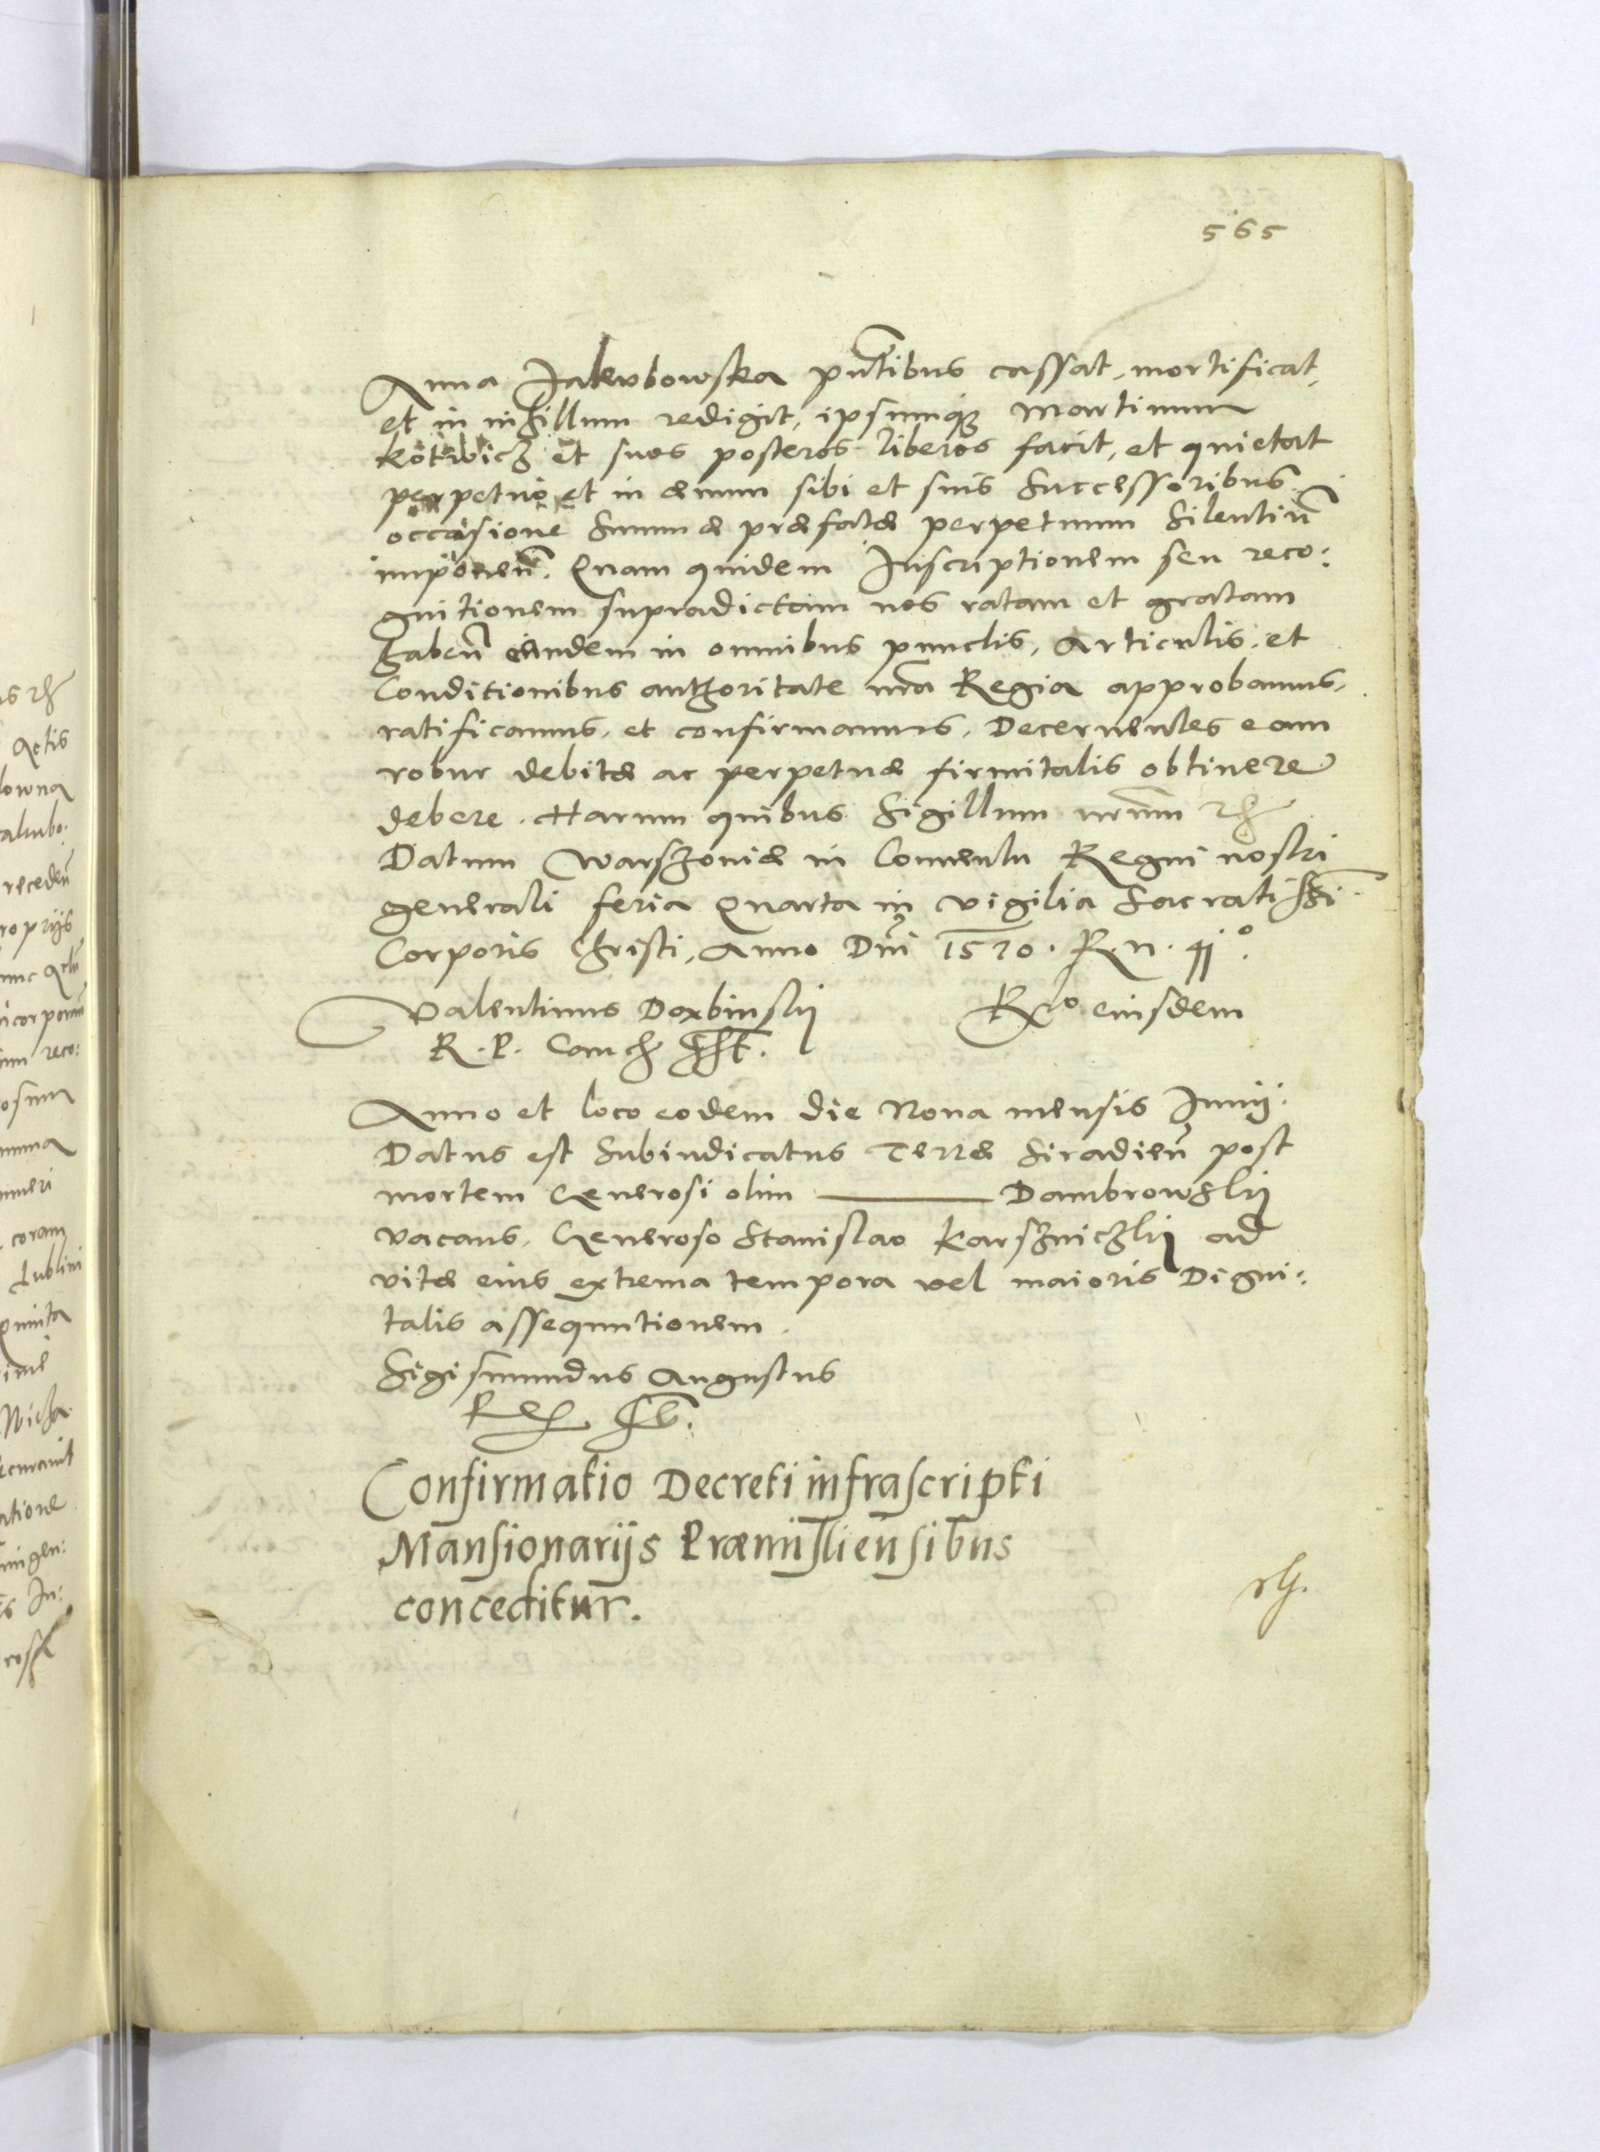 565
Anna Jakubowska pn̄tibus cassat, mortificat,
et in nihillum redigit, ipsumq₃ Martinum
Kotwicz et suos posteros liberos facit, et quietat
perpetuo et in æuum sibi et suis Successoribus
occasione Summæ præfatæ perpetuum Silentiū
imponeñ. Quam quidem Inscriptionem seu reco:
gnitionem supradictam nos ratam et gratam
habeñ eandem in omnibus punctis, Articulis, et
Conditionibus authoritate nr̄a Regia approbamus,
ratificamus, et confirmamus, Decernentes eam
robur debitæ ac perpetuæ firmitatis obtinere
debere. Harum quibus Sigillum nr̄um
Datum Warszoniæ in Conuentu Regni nostri
generali feria Quarta in vigilia Sacratissī
Corporis Christi, Anno Dn̄i 1570. R. n. 41°.
Valentinus Dembinskij Rꝫo eiusdem
R. P. Canch Sst.
Anno et loco eodem die Nona mensis Junij.
Datus est Subiudicatus Terræ Siradieñ post
mortem Generosi olim ——— Dambrowskij
vacans, Generoso Stanislao Karsznichkij ad
vitæ eius extrema tempora vel maioris Digni:
tatis assequutionem.
Sigismundus Augustus
Rex Sst.
Confirmatio Decreti infrascripti
Mansionarijs Præmisliensibus
conceditur.